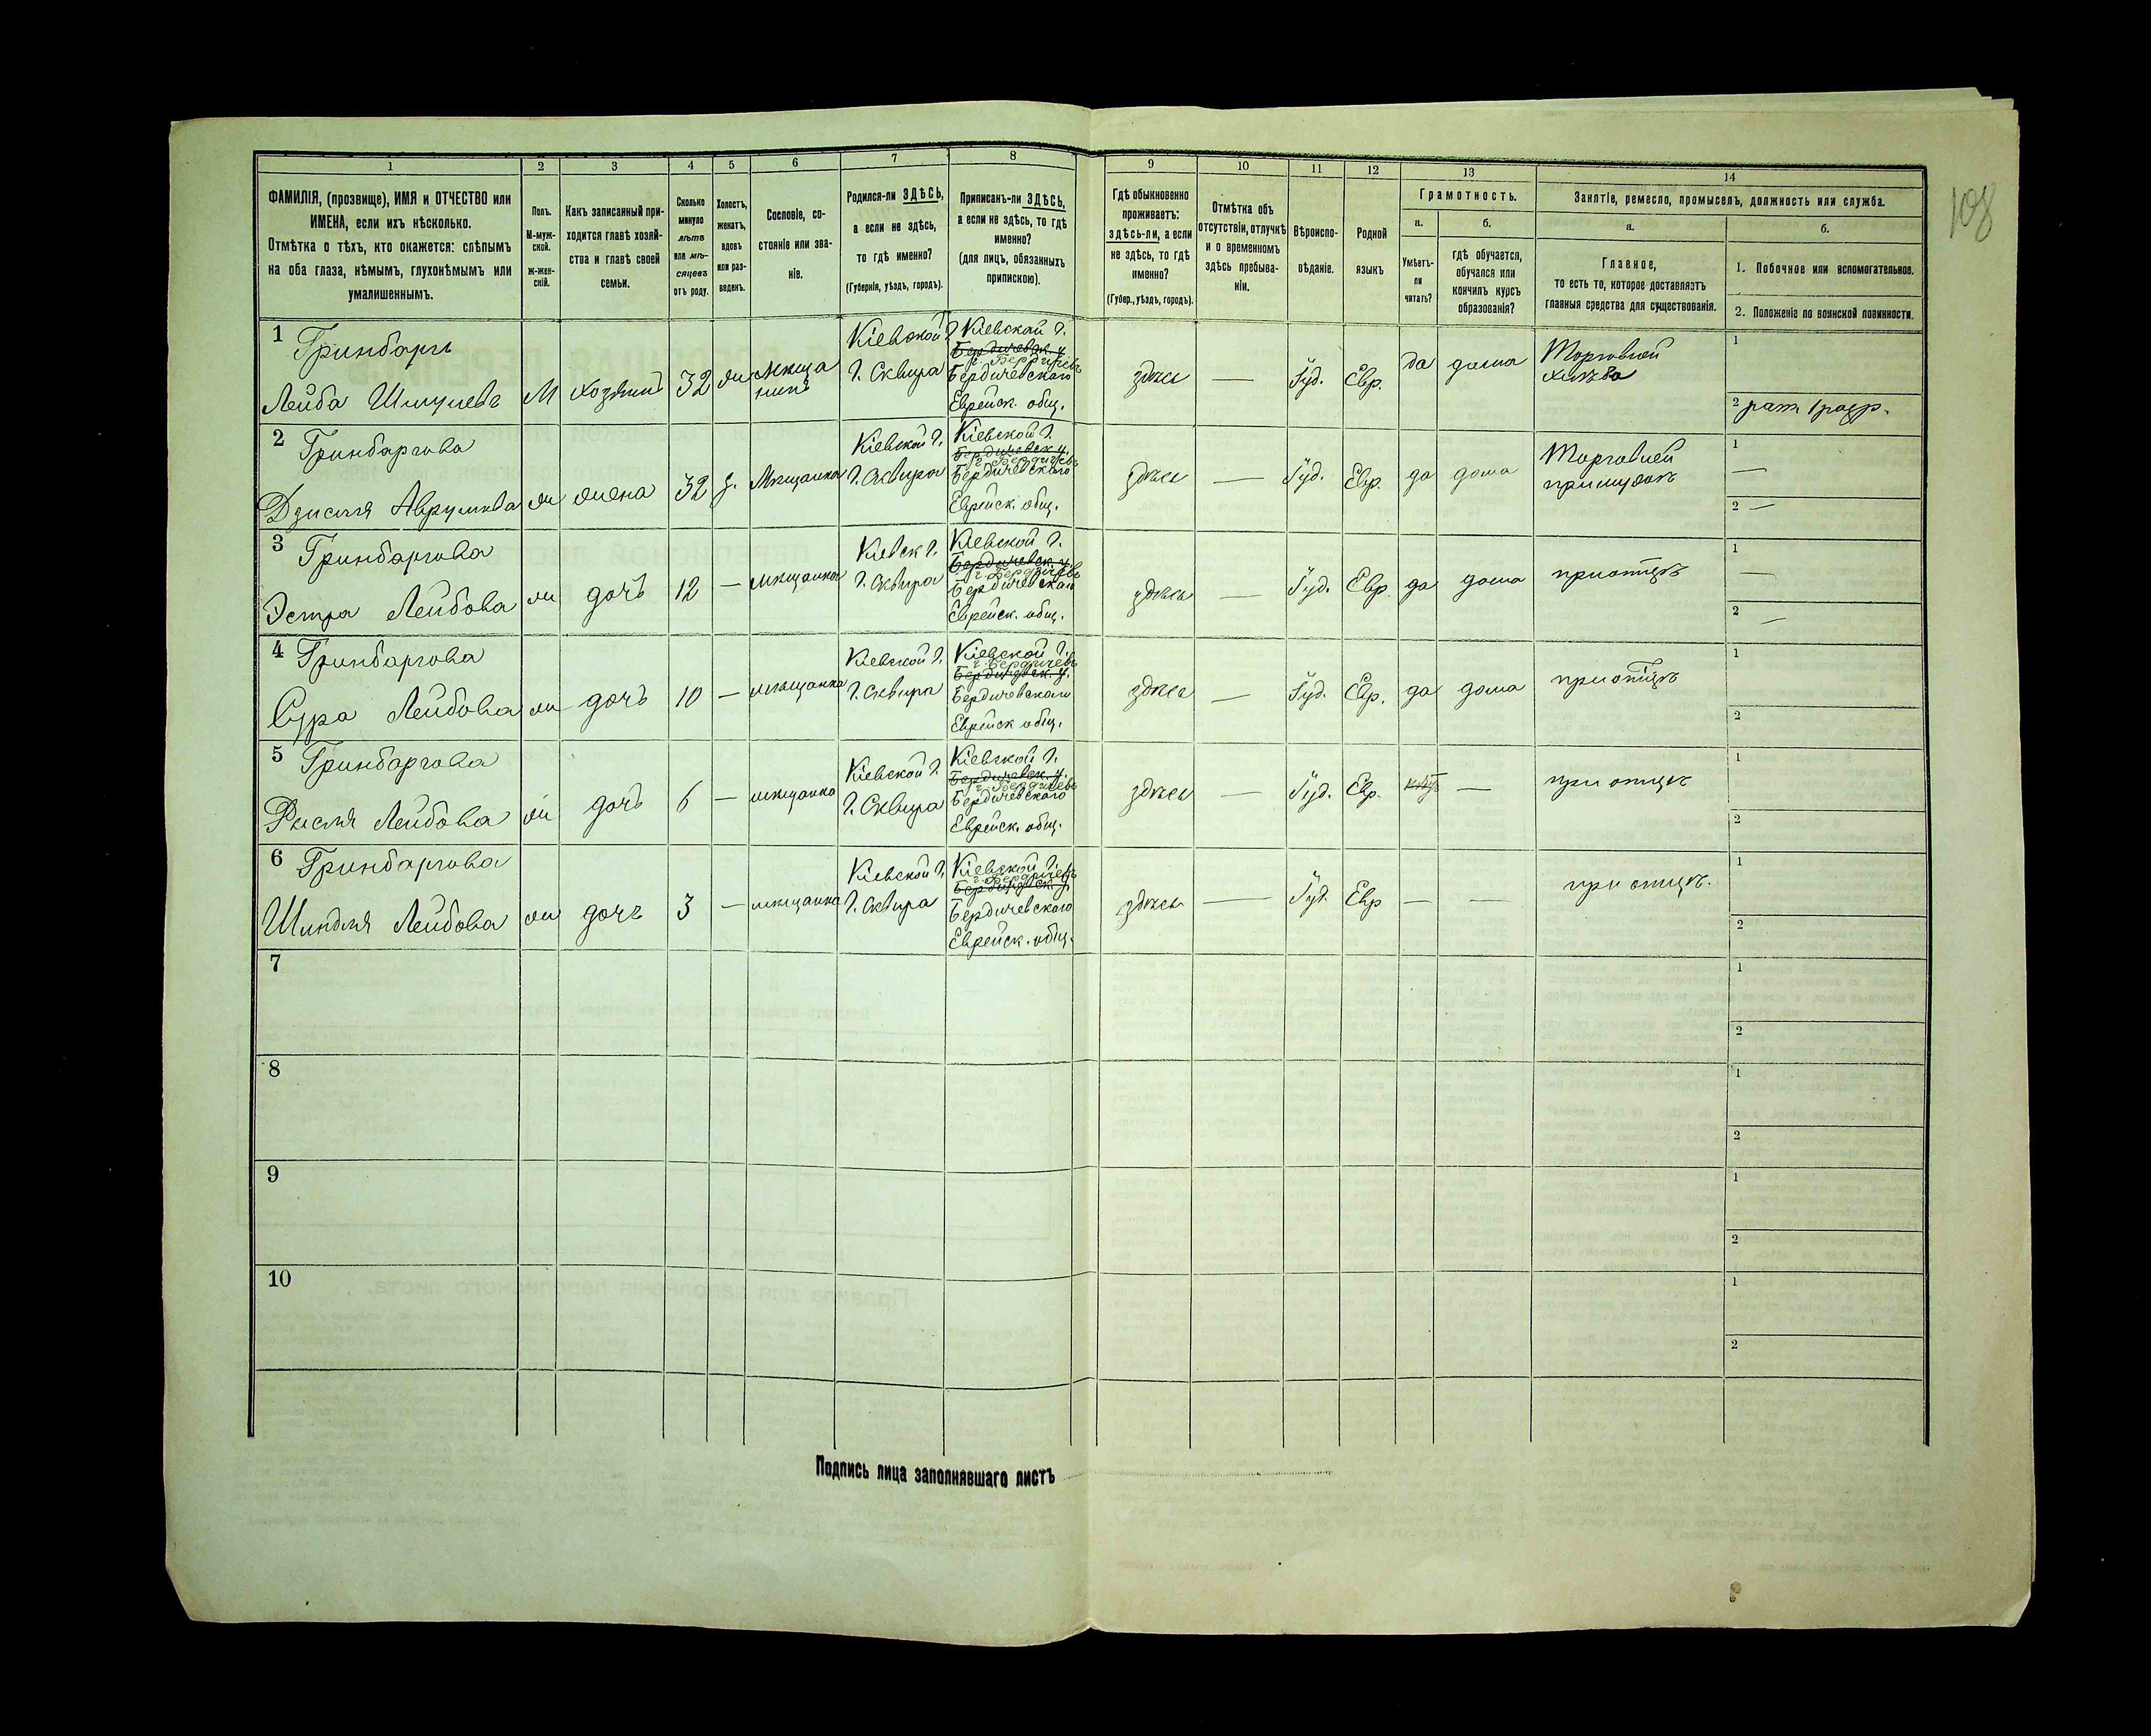 108
1 2 3 4 5 6 7 8 9 10 11 12 13 14
ФАМИЛІЯ, (прозвище), ИМЯ и ОТЧЕСТВО или
ИМЕНА, если ихъ нѣсколько.
Отмѣтка о тѣхъ, кто окажется: слѣпымъ
на оба глаза, нѣмымъ, глухонѣмымъ или
умалишеннымъ.
Полъ.
М-муж-
ской.
ж-жен-
скій.
Какъ записанный при-
ходится главѣ хозяй-
ства и главѣ своей
семьи.
Сколько
минуло
лѣтъ
или мѣ-
сяцевъ
отъ роду.
Холостъ,
женатъ,
вдовъ
или раз-
веденъ.
Сословіе, со-
стояніе или зва-
ніе.
Родился-ли ЗДѢСЬ,
а если не здѣсь,
то гдѣ именно?
(Губернія, уѣздъ, городъ).
Приписанъ-ли ЗДѢСЬ,
а если не здѣсь, то гдѣ
именно?
(для лицъ, обязанныхъ
припискою).
Гдѣ обыкновенно
проживаетъ:
здѣсь-ли, а если
не здѣсь, то гдѣ
именно?
(Губер., уѣздъ, городъ).
Отмѣтка объ
отсутствіи, отлучкѣ
и о временномъ
здѣсь пребыва-
ніи.
Вѣроиспо-
вѣданіе.
Родной
языкъ
Грамотность.
а.
Умѣетъ-
ли
читать?
б.
гдѣ обучается,
обучался или
кончилъ курсъ
образованія?
Занятіе, ремесло, промыселъ, должность или служба.
а.
Главное,
то есть то, которое доставляэтъ
главныя средства для существованія.
б.
1. Побочное или вспомогательное.
2. Положеніе по воинской повинности.
1 Гринбаргъ
Лейба Шмулевъ
М
хозяинъ
32
ж
Мѣща
нинъ
Кіевской г.
г. Сквира
Кіевской г.
Бердичевск. у.
г. Бердичевъ
Бердичевскаго
Еврейск. общ.
здѣсь
—
Іуд.
Евр.
да
дома
Торговлей
хлѣба
1
2 рат. 1 разр.
2 Гринбаргова
Дзисля Аврумова
ж
жена
32
з.
Мѣщанка
Кіевской г.
г. Сквира
Кіевской г.
Бердичевск. у.
г. Бердичевъ
Бердичевскаго
Еврейск. общ.
здѣсь
—
Іуд.
Евр.
да
дома
Торговлей
при мужѣ
1
—
2 —
3 Гринбаргова
Эстра Лейбова
ж
дочь
12
—
мѣщанка
Кіевск г.
г. Сквира
Кіевской г.
Бердичевск. у.
г. Бердичевъ
Бердичевскаго
Еврейск. общ.
здѣсь
—
Іуд.
Евр.
да
дома
при отцѣ
1
—
2
—
4 Гринбаргова
Сура Лейбова
ж
дочь
10
—
мѣщанка
Кіевской г.
г. Сквира
Кіевской г.
г. Бердичевъ
Бердичевск. у.
Бердичевскаго
Еврейск общ.
здѣсь
—
Іуд.
Евр.
да
дома
при отцѣ
1
2
5 Гринбаргова
Рысля Лейбова
ж
дочь
6
—
мѣщанка
Кіевской г.
г. Сквира
Кіевской г.
Бердичевск. у.
г. Бердичевъ
Бердичевскаго
Еврейск. общ.
здѣсь
—
Іуд.
Евр.
—
при отцѣ
1
2
6 Гринбаргова
Шиндля Лейбова
ж
дочь
3
—
мѣщанка
Кіевской г.
г. Сквира
Кіевской г.
г. Бердичевъ
Бердичевск. у.
Бердичевскаго
Еврейск. общ.
здѣсь
—
Іуд.
Евр
—
—
при отцѣ.
1
2
7
1
2
8
1
2
9
1
2
10
1
2
Подпись лица заполнявшаго листъ